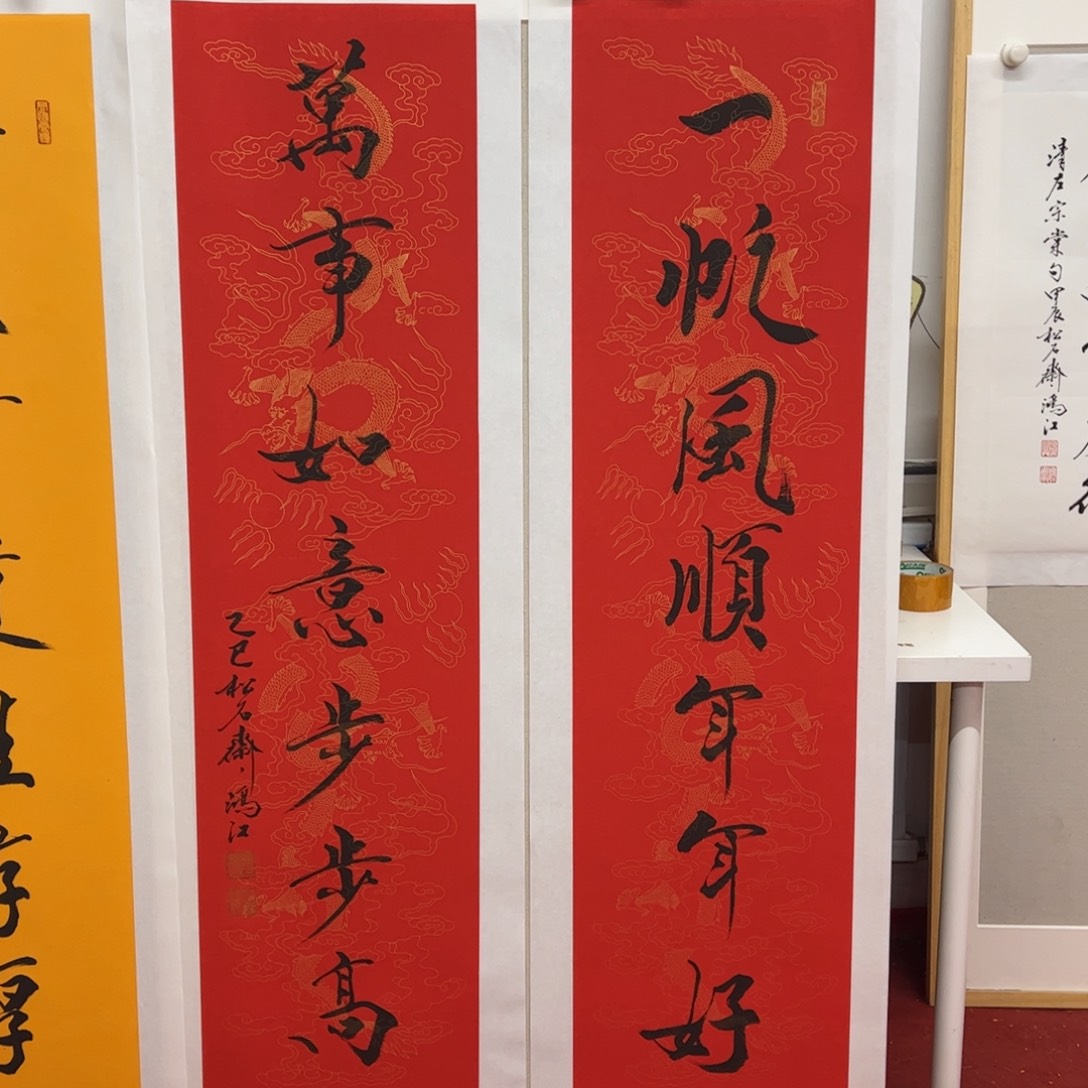 一帆風順年年好
萬事如意步步高
乙巳松石齋鴻江
清左宗棠句甲辰松石齋鴻江
厚